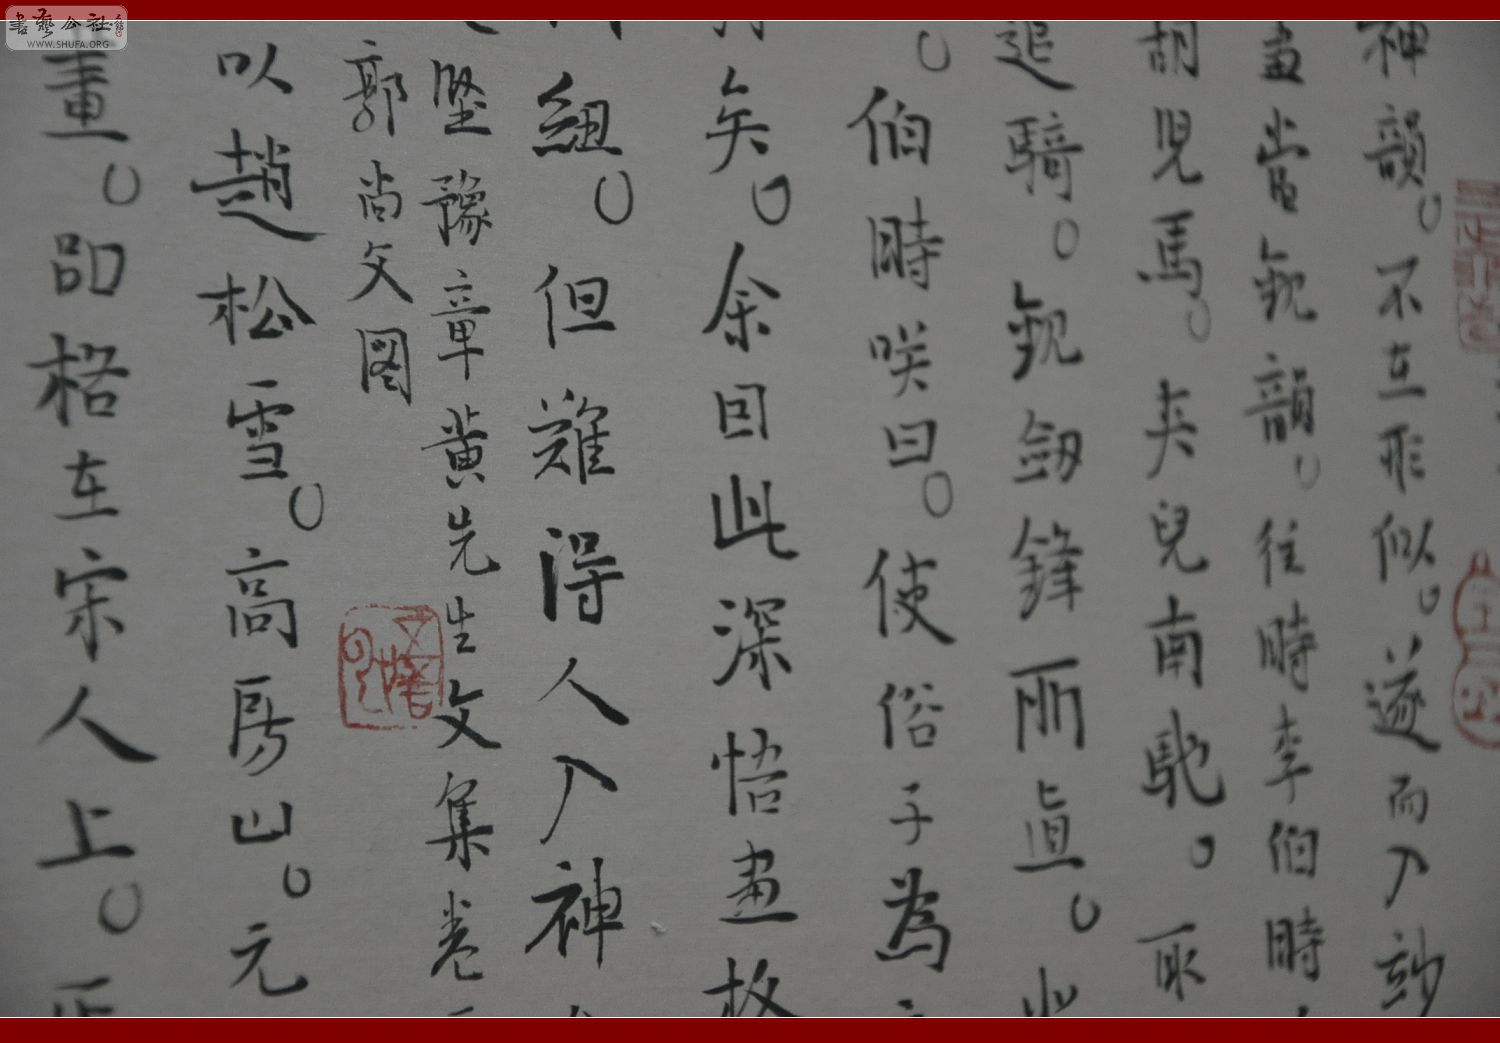 書藝公社
WWW.SHUFA.ORG
神韻。不在形似。遂而入妙
畫當觀韻。往時李伯時
胡兒馬。夾兒南馳。取
追騎。觀劍鋒所直。
伯時咲曰。使俗子為
矣。余因此深悟畫格
紐。但難得人入神
堅豫章黃先生文集卷
郭尚文图
以趙松雪。高房山。元
畫。品格在宋人上。